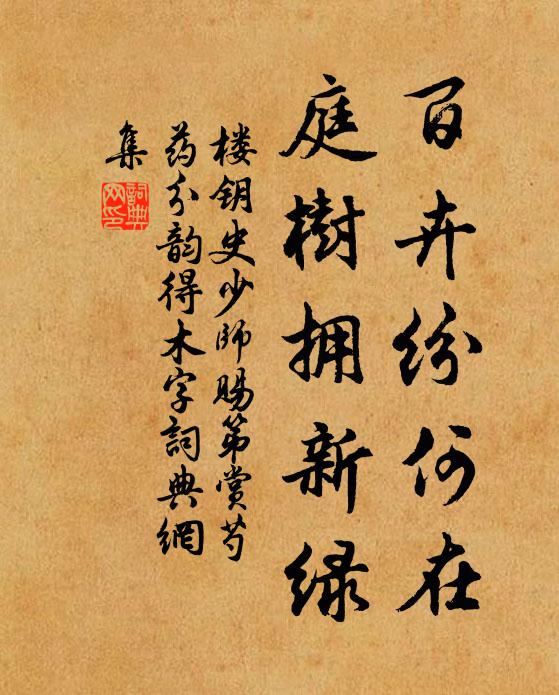 百卉纷何在
庭樹拥新绿
楼钥史少师赐第赏芍
药分韵得木字詞典網
集
詞典
网印